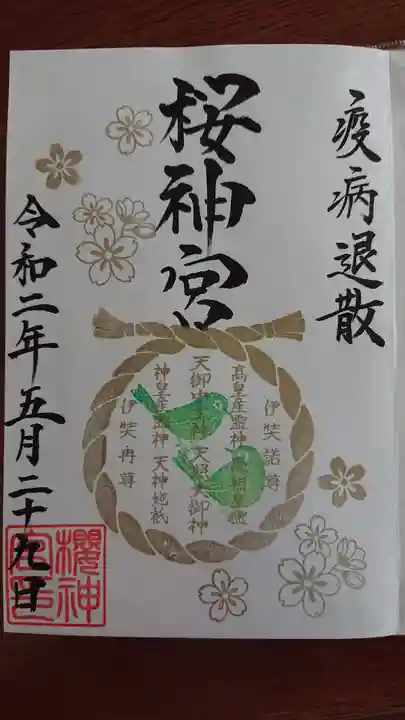 疫病退散
桜神宮
伊奘諾尊
高皇産霊神
天照大御神
神皇産霊神 天神地祇
伊奘冉尊
令和二年五月二十九日
櫻神
宮印